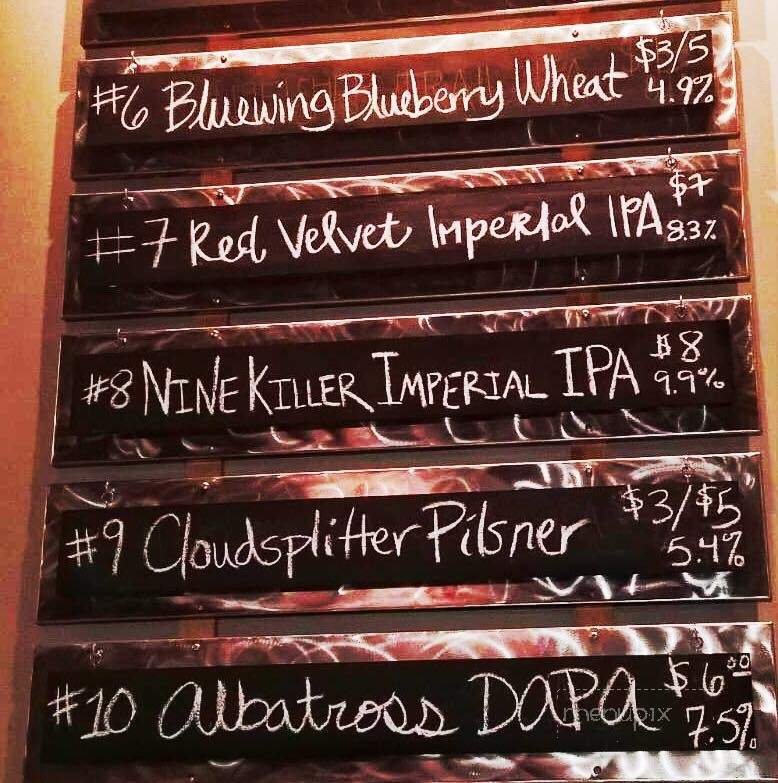 #6 Bluewing Blueberry Wheat $3/5 4.9%
#7 Red Velvet Imperial IPA $7 8.3%
#8 NINE KILLER IMPERIAL IPA $8 9.9%
#9 Cloudsplitter Pilsner $3/$5 5.4%
#10 Albatross DAPA $6.00 7.5%
menupix